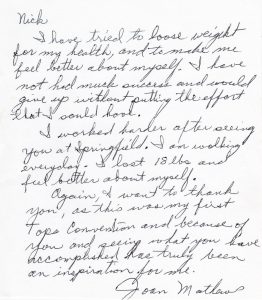 Nick
I have tried to loose weight
for my health, and to make me
feel better about myself. I have
not had much success and would
give up without putting the effort
that I could have.
I worked harder after seeing
you at Springfield. I am walking
everyday. I lost 18 lbs and
feel better about myself.
Again, I want to thank
you, as this was my first
Tops Convention and because of
you and seeing what you have
accomplished has truly been
an inspiration for me.
Joan Mathews